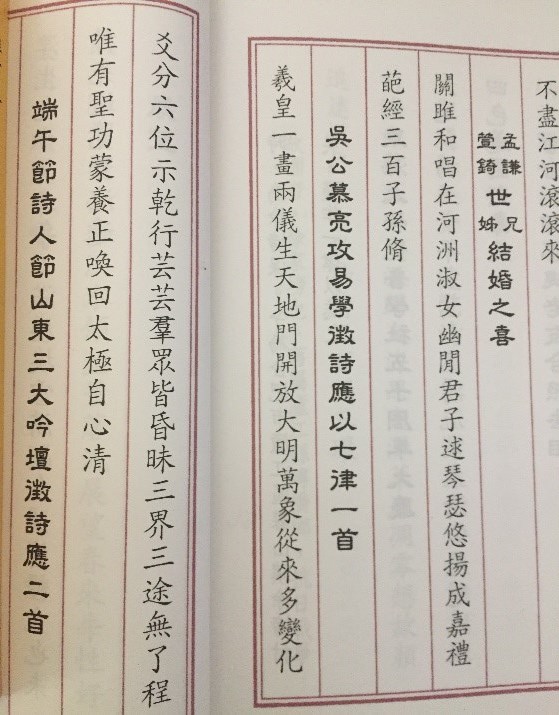 不盡江河滾滾來
孟謙萱錡世兄姊結婚之喜
關雎和唱在河洲淑女幽閒君子逑琴瑟悠揚成嘉禮
葩經三百子孫脩
吳公慕亮攻易學徵詩應以七律一首
羲皇一畫兩儀生天地門開放大明萬象從來多變化
爻分六位示乾行芸芸羣眾皆昏昧三界三途無了程
唯有聖功蒙養正喚回太極自心清
端午節詩人節山東三大吟壇徵詩應二首